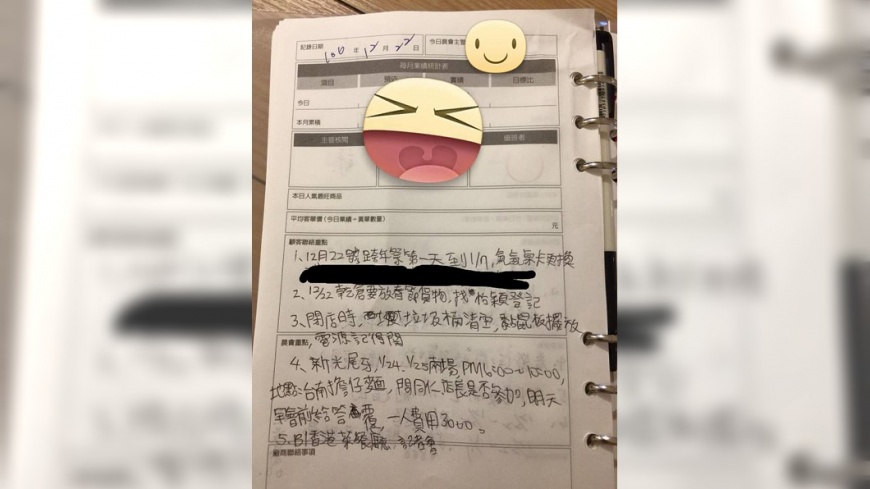 記錄日期 106 年 12 月 22 日 今日晨會主管
每月業績統計表
項目 業績 目標比
今日
本月業績
主管核閱 值班者
本日人氣最旺商品
平均客單價(今日業績÷賣單數量) 元
顧客聯絡重點
1、12月22號跨年第一天到1/1,氣氛
2、12/22 乾倉要放春節貨物,找 怡穎登記
3、閉店時, 垃圾桶清空,黏鼠板擺放,
電源記得關
晨會重點
4、新光尾牙,1/24、1/25兩場,PM6:00~10:00,
地點:台南擔仔麵,問同仁店長是否參加,明天
早會前給答覆,一人費用3000。
5、B1香港茶餐廳 記者會
廠商聯絡事項